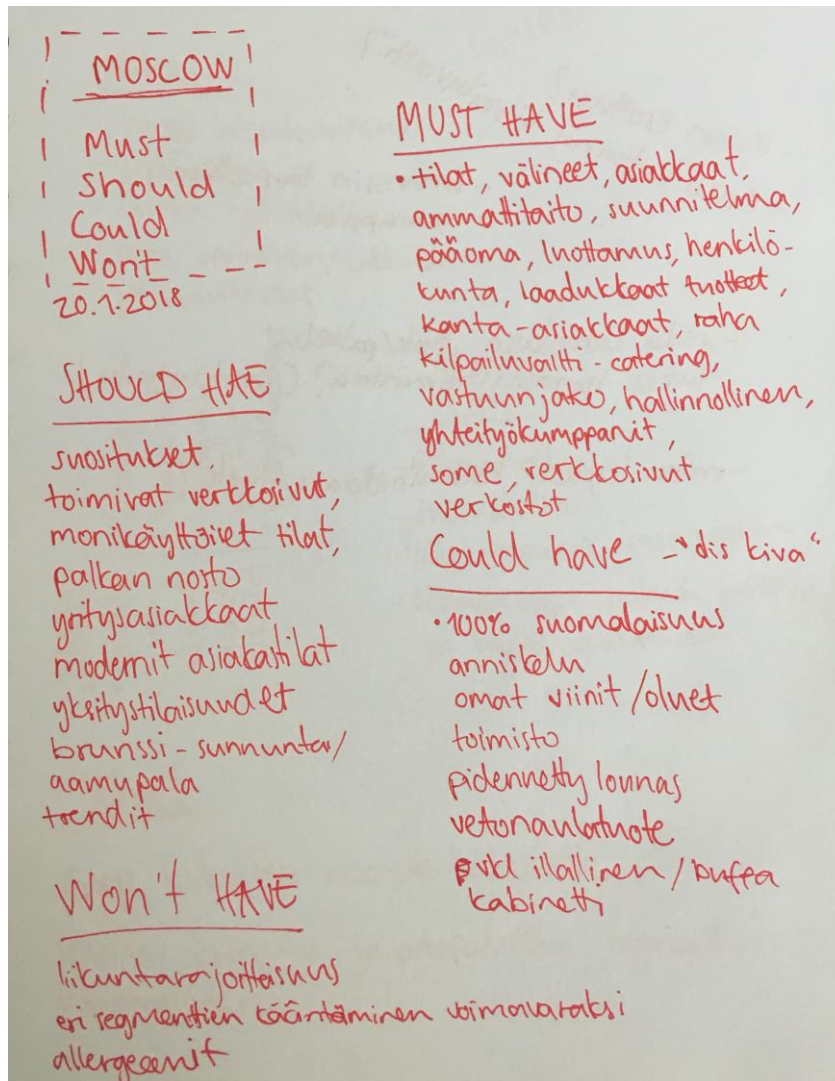 MOSCOW
Must
Should
Could
Won't
20.1.2018
SHOULD HAE
suositukset,
toimivat verkkosivut,
monikäyttöiset tilat,
palkan nosto
yritysasiakkaat
modernit asiakastilat
yksityistilaisuudet
brunssi - sunnuntai/
aamupala
trendit
Won't HAVE
liikuntarajoitteisuus
eri segmenttien kääntäminen voimavaraksi
allergeenit
MUST HAVE
• tilat, välineet, asiakkaat,
ammattitaito, suunnitelma,
pääoma, luottamus, henkilö-
kunta, laadukkaat tuotteet,
kanta-asiakkaat, raha
kilpailuvaltti - catering,
vastuunjako, hallinnollinen,
yhteityökumppanit,
some, verkkosivut
verkostot
Could have - "ois kiva"
• 100% suomalaisuus
anniskelu
omat viinit / oluet
toimisto
pidennetty lounas
vetonaulatuote
illallinen / buffa
kabinetti